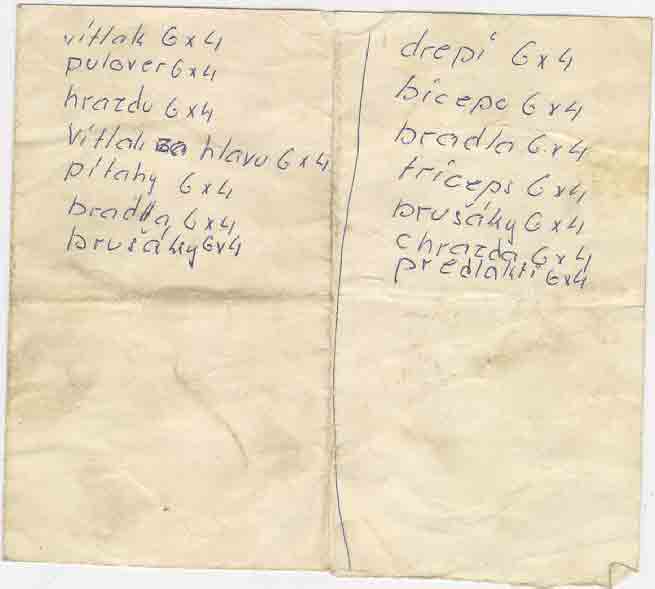 vítlak 6x4
pulover 6x4
hrazdu 6x4
vítlak za hlavu 6x4
pítahy 6x4
bradla 6x4
brušáky 6x4
drepi 6x4
bicepo 6x4
bradla 6x4
triceps 6x4
brusáky 6x4
chrazda 6x4
předlaktí 6x4